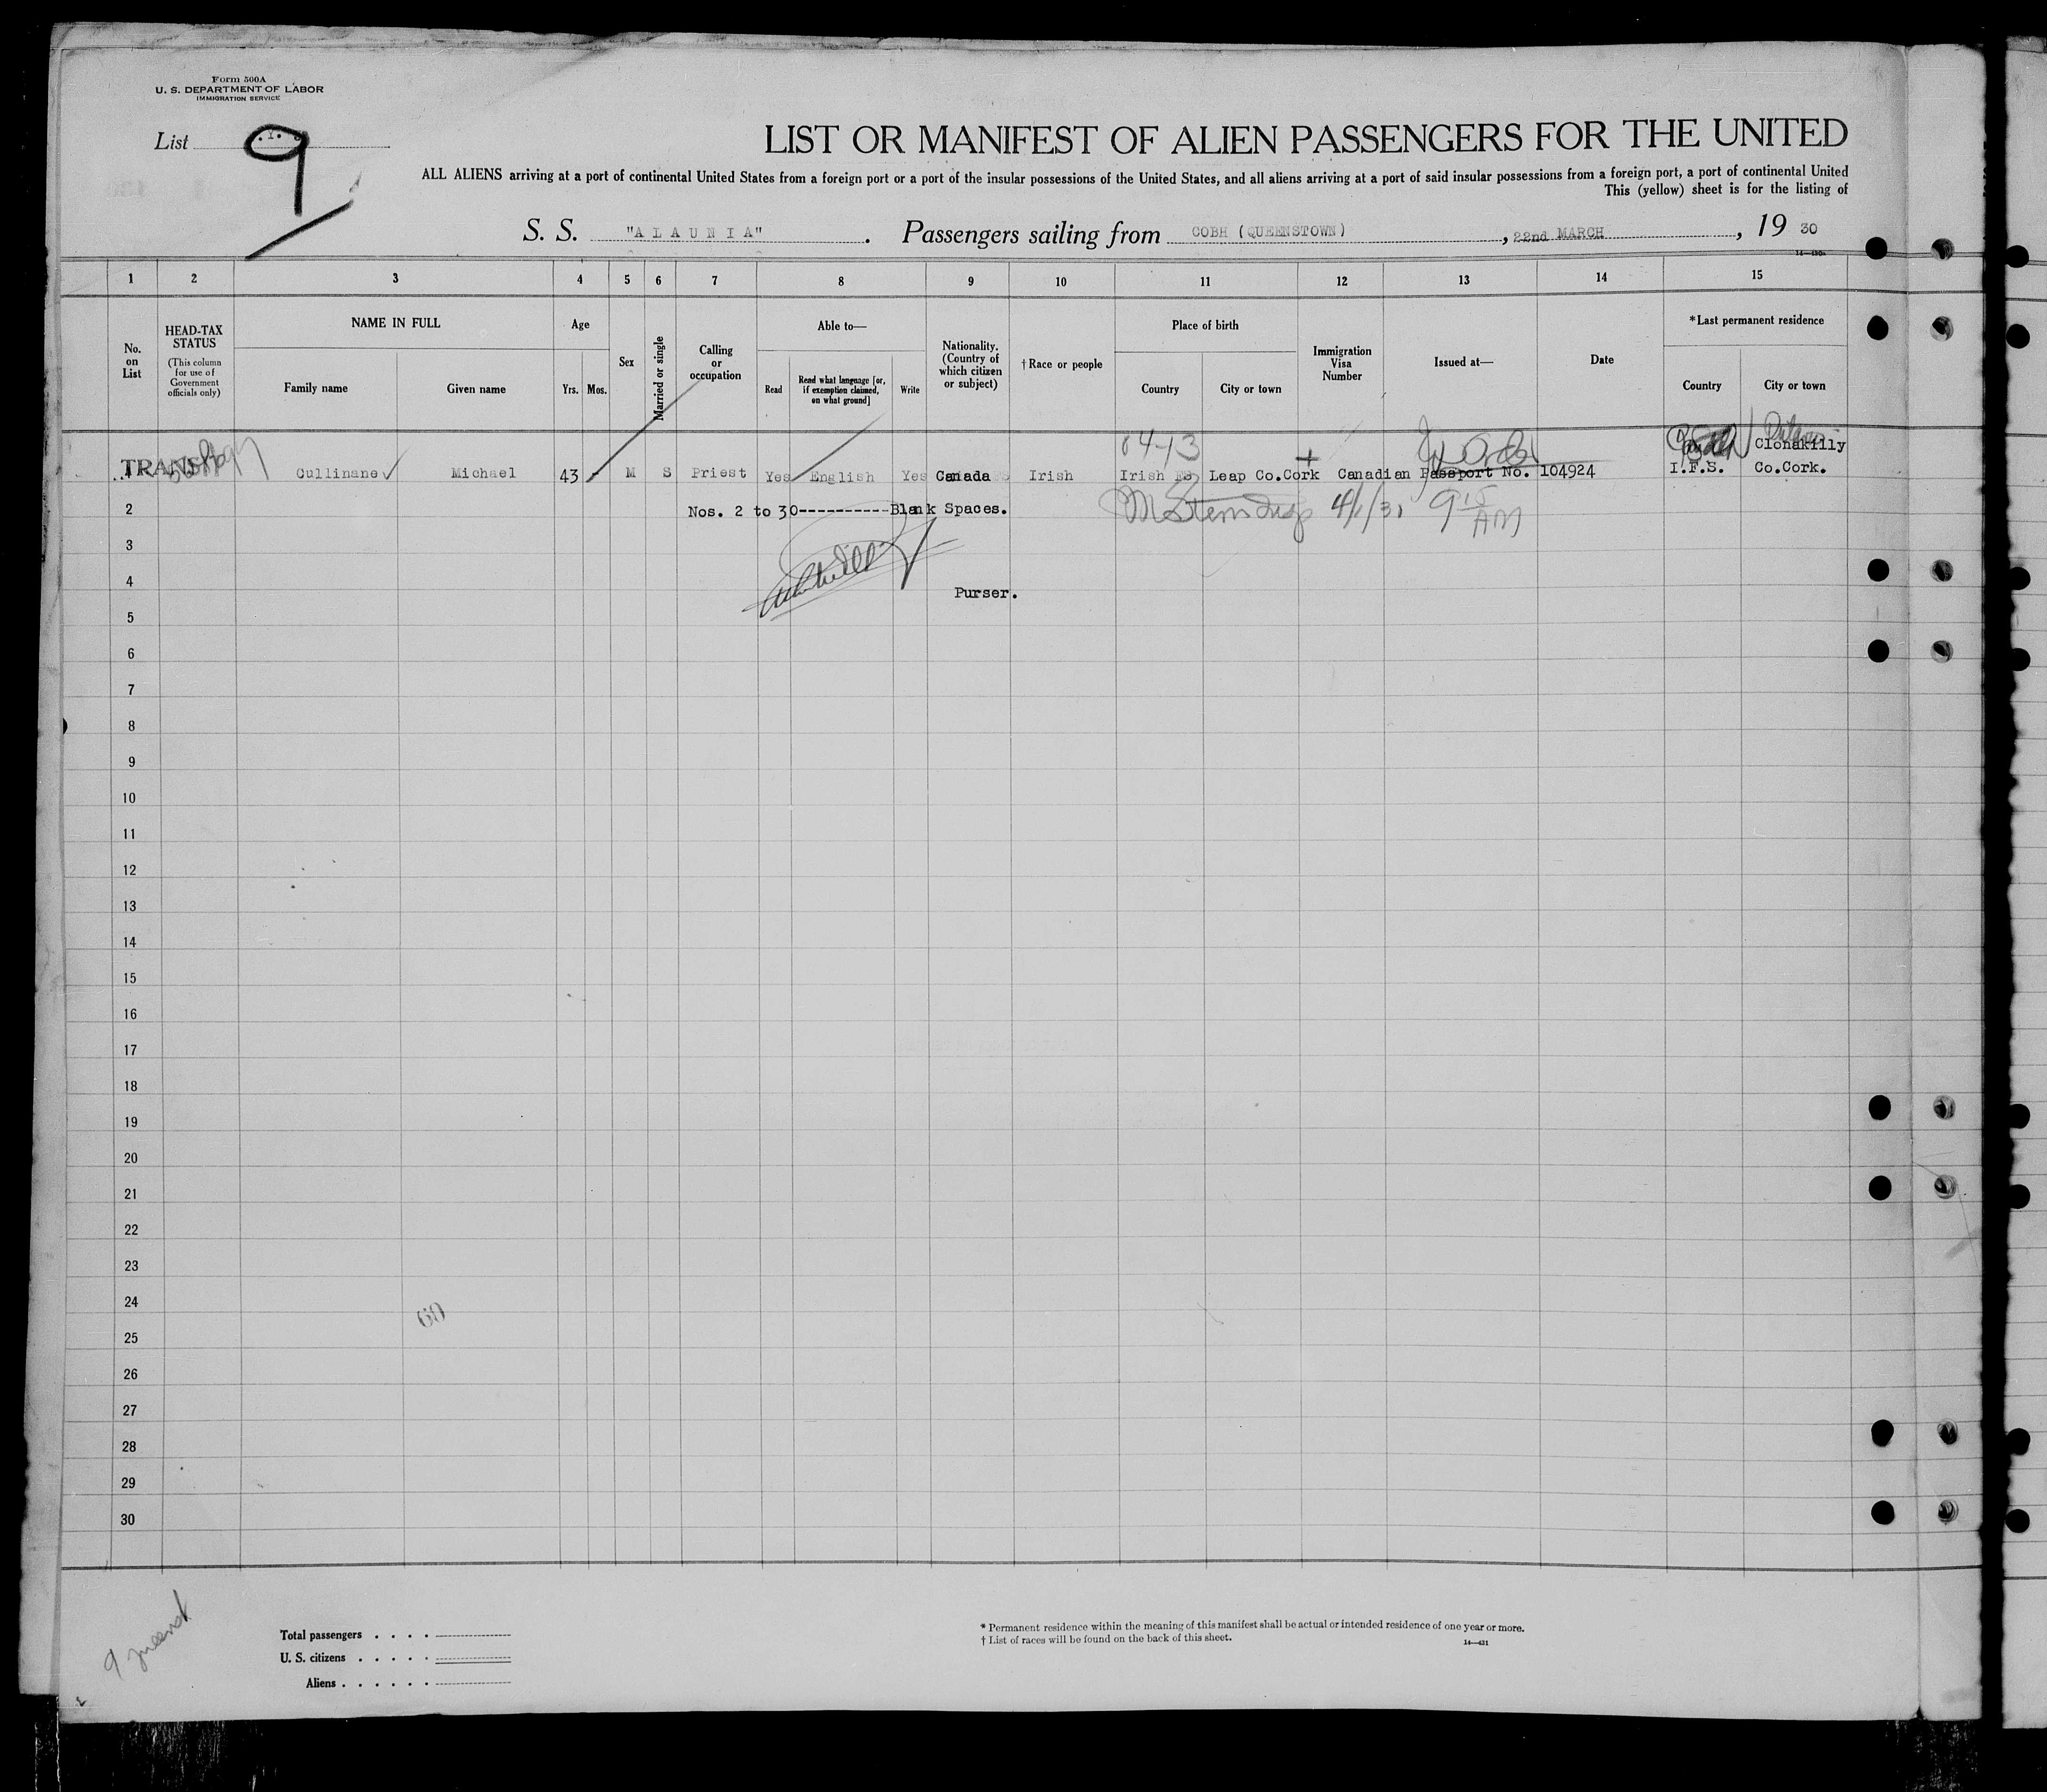 Form 500A
U. S. DEPARTMENT OF LABOR
IMMIGRATION SERVICE
List 9
LIST OR MANIFEST OF ALIEN PASSENGERS FOR THE UNITED
ALL ALIENS arriving at a port of continental United States from a foreign port or a port of the insular possessions of the United States, and all aliens arriving at a port of said insular possessions from a foreign port, a port of continental United
This (yellow) sheet is for the listing of
S. S. "ALAUNIA". Passengers sailing from COBH (QUEENSTOWN), 22nd MARCH, 19 30
1 2 3 4 5 6 7 8 9 10 11 12 13 14 15
No. on List
HEAD-TAX STATUS
(This column for use of Government officials only)
NAME IN FULL
Family name
Given name
Age
Yrs.
Mos.
Sex
Married or single
Calling or occupation
Able to—
Read
Read what language [or, if exemption claimed, on what ground]
Write
Nationality. (Country of which citizen or subject)
† Race or people
Place of birth
Country
City or town
Immigration Visa Number
Issued at—
Date
* Last permanent residence
Country
City or town
04-13
Clonakilly
1 TRANSIT Cullinane Michael 43 M S Priest Yes English Yes Canada Irish Irish FS Leap Co.Cork Canadian Passport No. 104924 I.F.S. Co.Cork.
2 Nos. 2 to 30----------Blank Spaces. 9 15 AM
3
4
Purser.
5
6
7
8
9
10
11
12
13
14
15
16
17
18
19
20
21
22
23
24
60
25
26
27
28
29
30
Total passengers
U. S. citizens
Aliens
* Permanent residence within the meaning of this manifest shall be actual or intended residence of one year or more.
† List of races will be found on the back of this sheet.
14—431